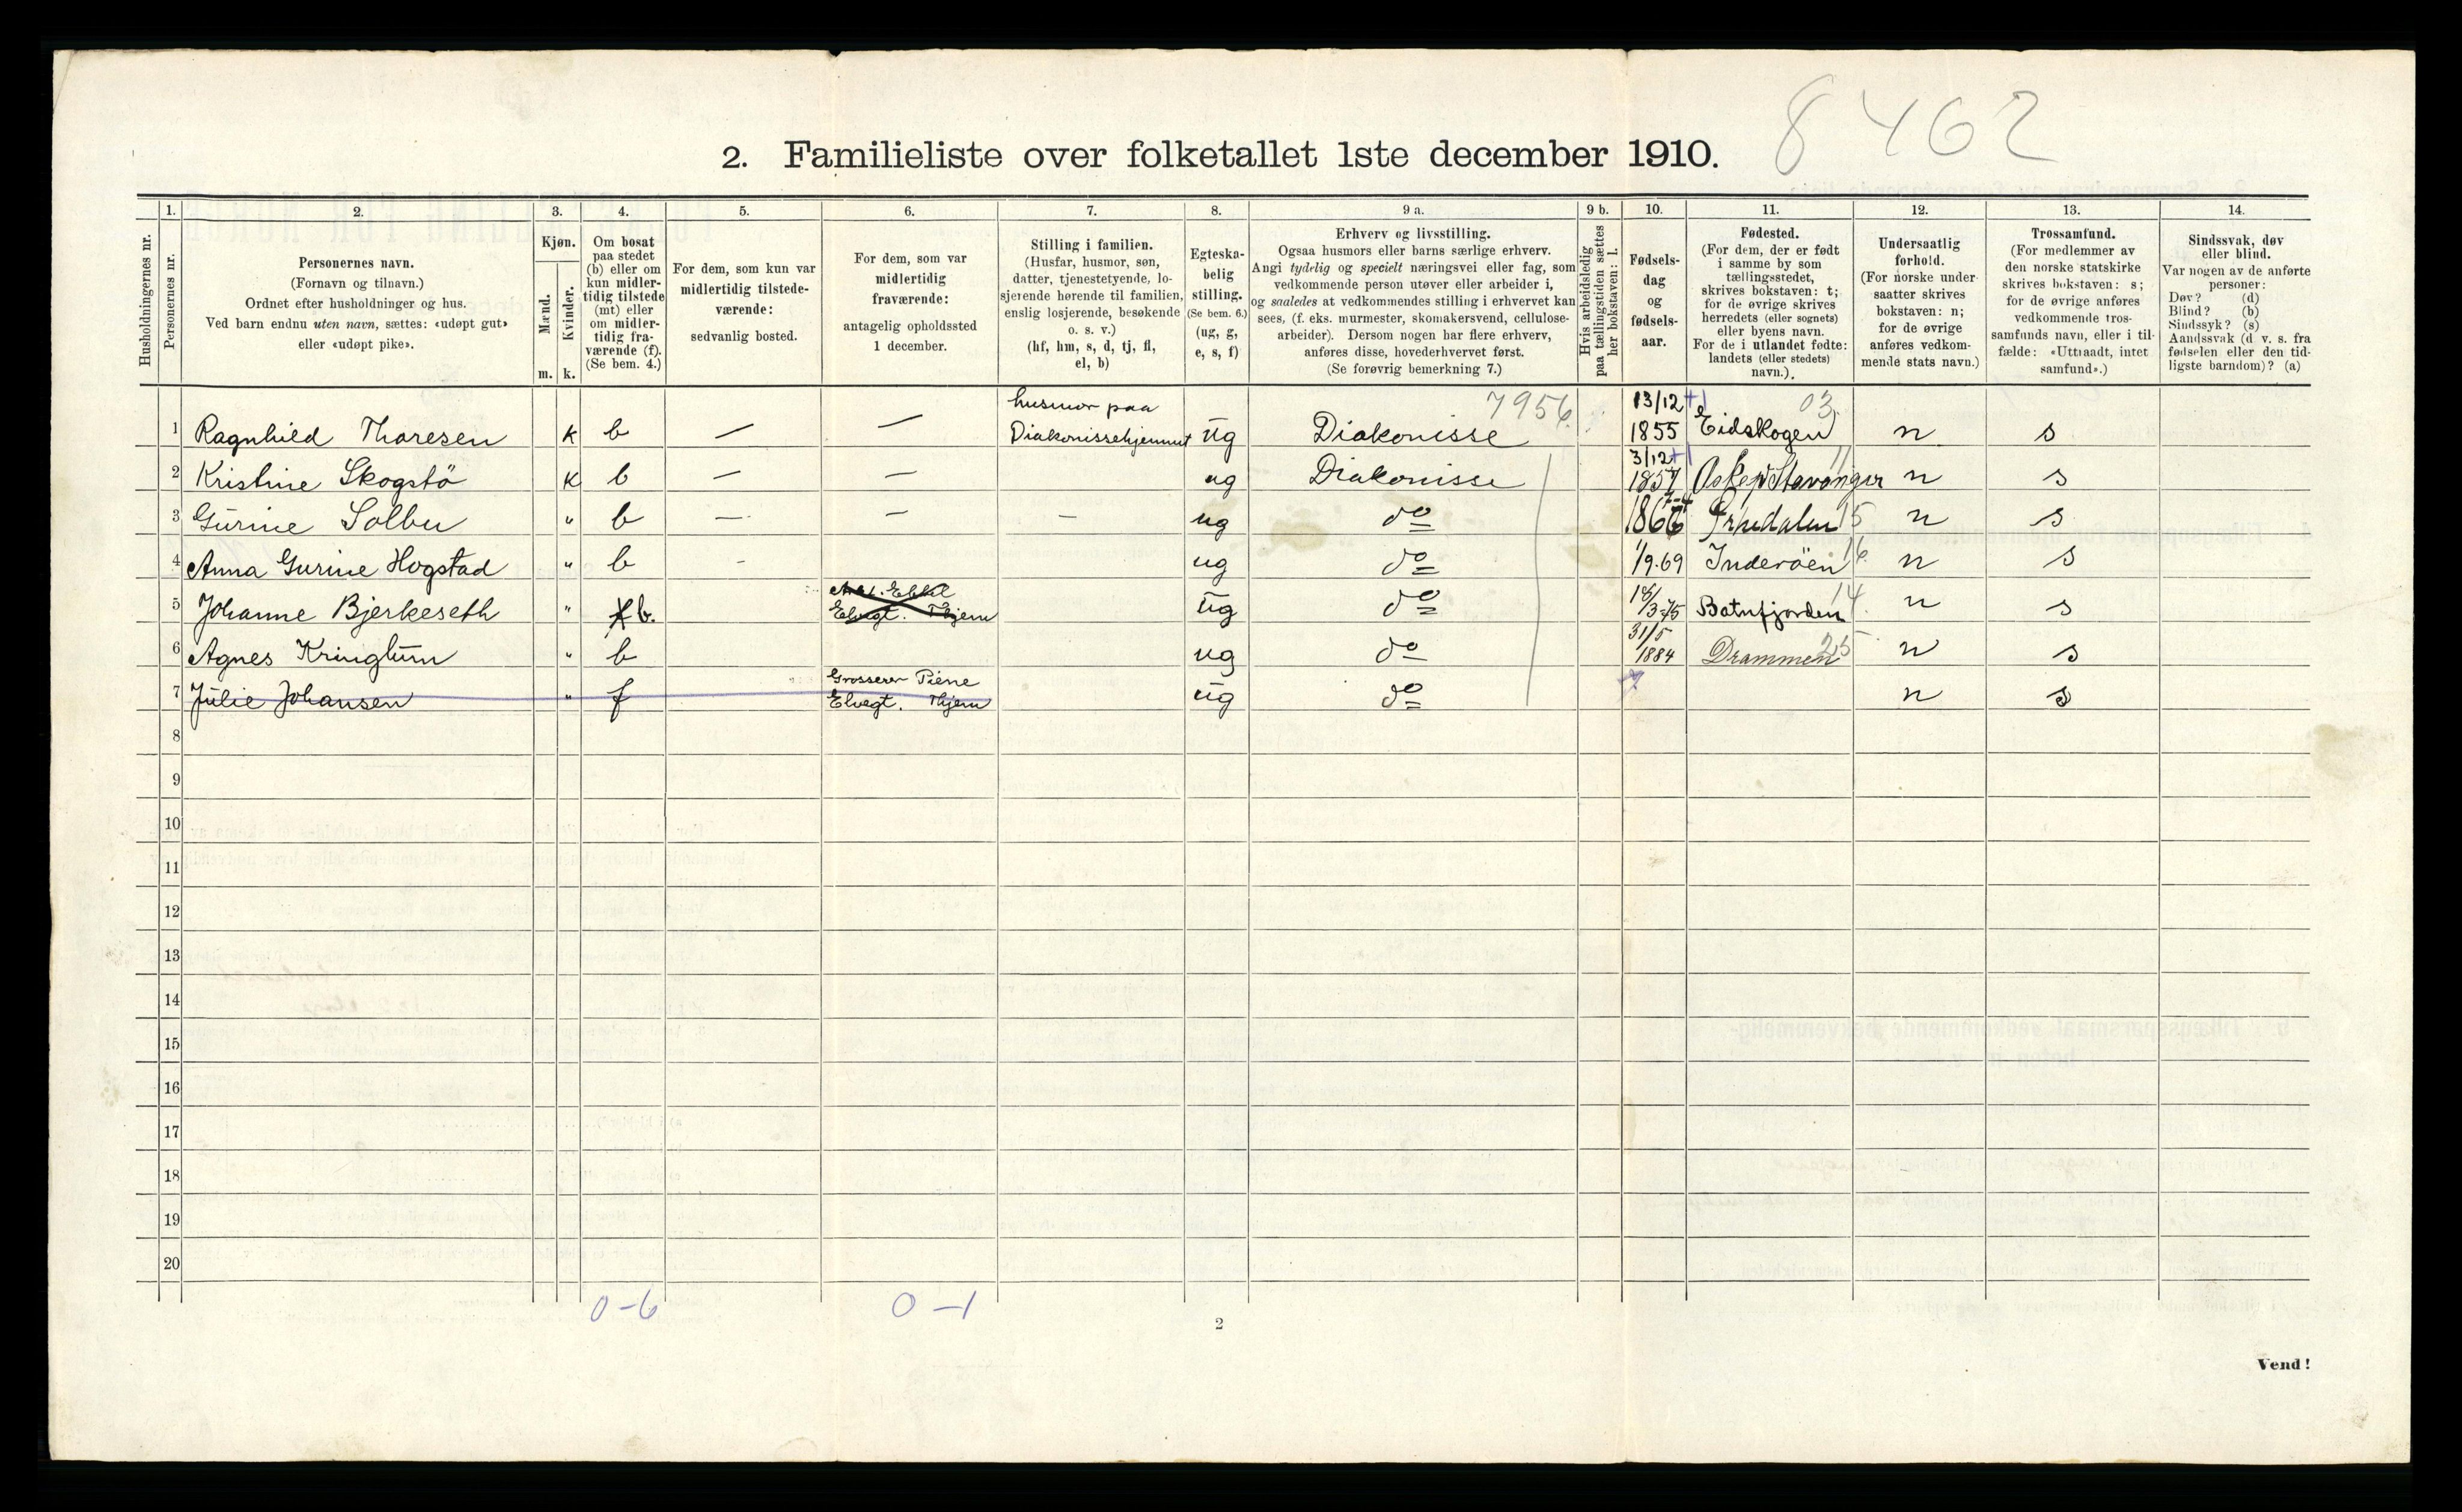 8462
2. Familieliste over folketallet 1ste december 1910.
1. 2. 3. 4. 5. 6. 7. 8. 9 a. 9 b. 10. 11. 12. 13. 14.
Husholdningernes nr.
Personernes nr.
Personernes navn.
(Fornavn og tilnavn.)
Ordnet efter husholdninger og hus.
Ved barn endnu uten navn, sættes: «udøpt gut»
eller «udøpt pike».
Kjøn.
Mænd.
Kvinder.
m. k.
Om bosat
paa stedet
(b) eller om
kun midler-
tidig tilstede
(mt) eller
om midler-
tidig fra-
værende (f).
(Se bem. 4.)
For dem, som kun var
midlertidig tilstede-
værende:
sedvanlig bosted.
For dem, som var
midlertidig
fraværende:
antagelig opholdssted
1 december.
Stilling i familien.
(Husfar, husmor, søn,
datter, tjenestetyende, lo-
sjerende hørende til familien,
enslig losjerende, besøkende
o. s. v.)
(hf, hm, s, d, tj, fl,
el, b)
Egteska-
belig
stilling.
(Se bem. 6.)
(ug, g,
e, s, f)
Erhverv og livsstilling.
Ogsaa husmors eller barns særlige erhverv.
Angi tydelig og specielt næringsvei eller fag, som
vedkommende person utøver eller arbeider i,
og saaledes at vedkommendes stilling i erhvervet kan
sees, (f. eks. murmester, skomakersvend, cellulose-
arbeider). Dersom nogen har flere erhverv,
anføres disse, hovederhvervet først.
(Se forøvrig bemerkning 7.)
Hvis arbeidsledig
paa tællingstiden sættes
her bokstaven: l.
Fødsels-
dag
og
fødsels-
aar.
Fødested.
(For dem, der er født
i samme by som
tællingsstedet,
skrives bokstaven: t;
for de øvrige skrives
herredets (eller sognets)
eller byens navn.
For de i utlandet fødte:
landets (eller stedets)
navn.)
Undersaatlig
forhold.
(For norske under-
saatter skrives
bokstaven: n;
for de øvrige
anføres vedkom-
mende stats navn.)
Trossamfund.
(For medlemmer av
den norske statskirke
skrives bokstaven: s;
for de øvrige anføres
vedkommende tros-
samfunds navn, eller i til-
fælde: «Uttraadt, intet
samfund».)
Sindssvak, døv
eller blind.
Var nogen av de anførte
personer:
Døv? (d)
Blind? (b)
Sindssyk? (s)
Aandssvak (d. v. s. fra
fødselen eller den tid-
ligste barndom)? (a)
husmor paa 7956 13/12 03
1 Ragnhild Thoresen k b — — Diakonissehjemmet ug Diakonisse 1855 Eidskogen n s
3/12 11
2 Kristine Skogstö k b — — ug Diakonisse 1857 Stavanger n s
3 Gurine Solbu " b — — — ug do 15 n s
4 Anna Gurine Hogstad " b - ug do 1/9.69 Inderöen 16 n s
5 Johanne Bjerkeseth " f b. Elvegt. Thjem ug do 3.75 Batnfjorden 14 n s
31/5
6 Agnes Kringlum " b ug do 1884 Drammen 25 n s
Grosserer Piene
7 Julie Johansen " f Elvegt. Thjem ug do n s
8
9
10
11
12
13
14
15
16
17
18
19
20
0-6 0-1
2
Vend!